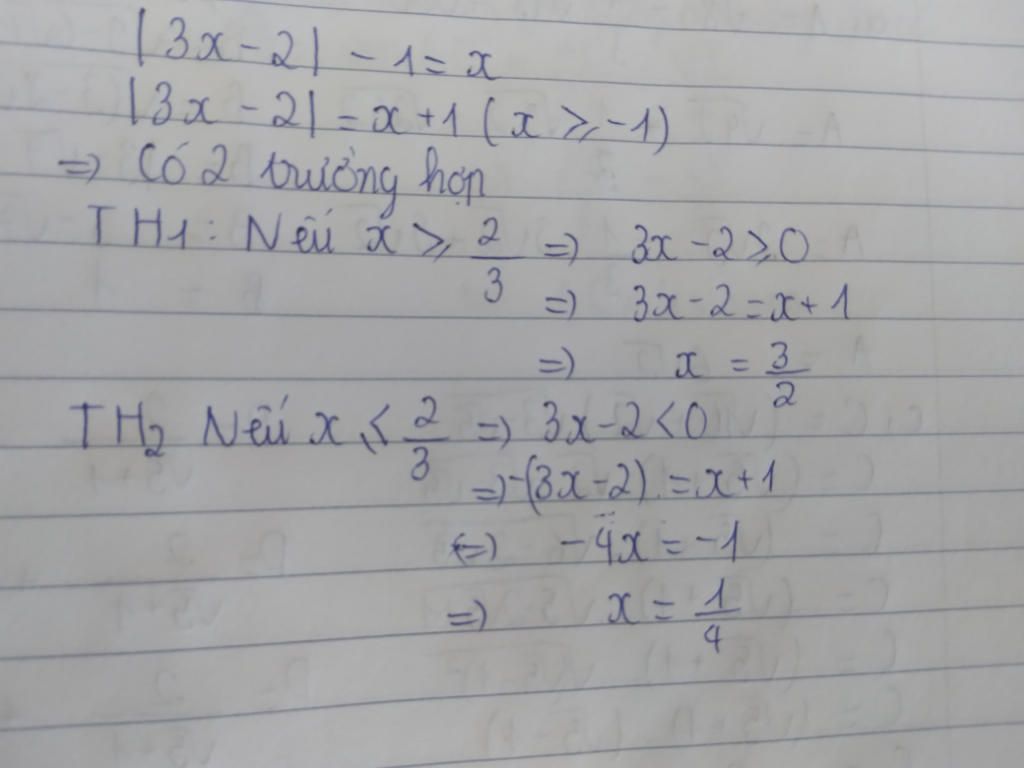 |3x - 2| - 1 = x
|3x - 2| = x + 1 ( x ⩾ -1)
=> Có 2 trường hợp
TH1: Nếu x ⩾ 2/3 => 3x - 2 ⩾ 0
=> 3x - 2 = x + 1
=> x = 3/2
TH2 Nếu x < 2/3 => 3x - 2 < 0
=> -(3x - 2) = x + 1
<=> -4x = -1
=> x = 1/4